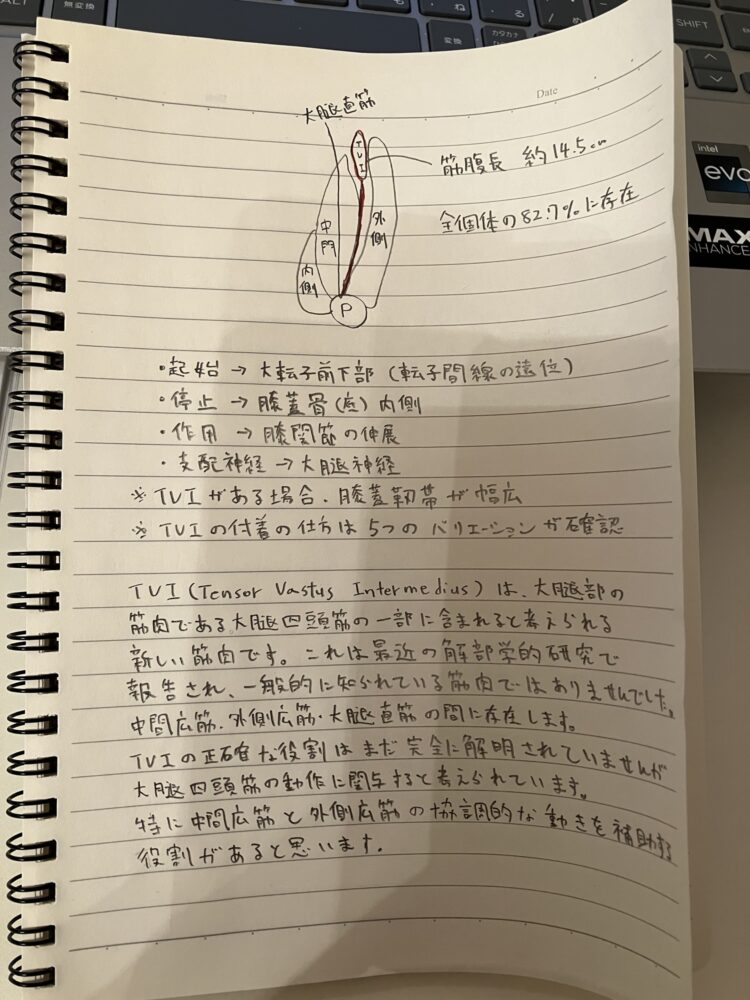 ALT
無変換
変換
カタカナ
ね
る
め
SHIFT
intel
evo
MAX
ENHANCE
Date
大腿直筋
TVI
筋腹長 約14.5cm
全個体の82.7%に存在
中間
外側
内側
P
・起始→大転子前下部(転子間線の遠位)
・停止→膝蓋骨(底)内側
・作用→膝関節の伸展
・支配神経→大腿神経
※TVIがある場合、膝蓋靭帯が幅広
※TVIの付着の仕方は5つのバリエーションが確認
TVI(Tensor Vastus Intermedius)は、大腿部の
筋肉である大腿四頭筋の一部に含まれると考えられる
新しい筋肉です。これは最近の解剖学的研究で
報告され、一般的に知られている筋肉ではありませんでした。
中間広筋・外側広筋・大腿直筋の間に存在します。
TVIの正確な役割はまだ完全に解明されていませんが
大腿四頭筋の動作に関与すると考えられています。
特に中間広筋と外側広筋の協調的な動きを補助する
役割があると思います。